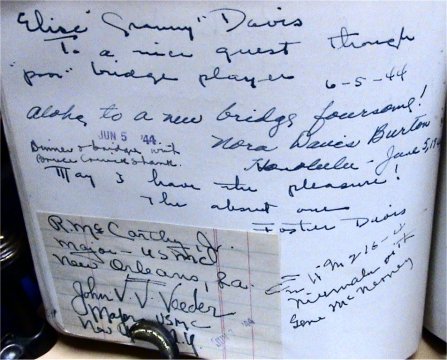 Elise "Granny" Davis
To a nice guest though
"poor" bridge player
6-5-44
aloha to a new bridge foursome!
JUN 5 '44
Nora Davis Burton
Dinner & bridge with
Honolulu - June 5,
May I have the pleasure!
The about one
Foster Davis
R. McCarthy Jr.
Major - USMC
New Orleans, La.
John V. V. Veeder
Major USMC
Gene McNerney